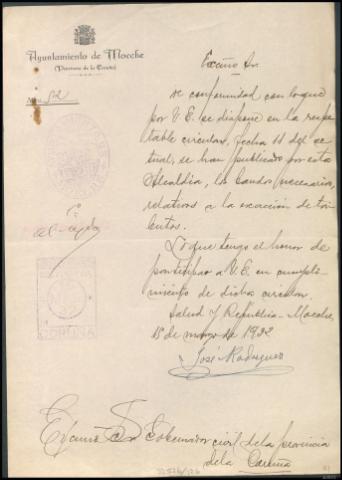 Ayuntamiento de Moeche
(Provincia de la Coruña)
Núm. 52
Excmo Sr.
De conformidad con lo que
por V.E. se dispone en la respe-
table circular, fecha 11 del ac-
tual, se han publicado por esta
Alcaldia, los bandos necesarios,
relativos a la exacción de tri-
butos.
Lo que tengo el honor de
participar a V.E. en cumpli-
miento de dicha circular.
Salud y Republica - Moeche,
15 de marzo de 1932
José Rodriguez
CORUÑA
Excmo Sr Gobernador civil de la provincia
de la Coruña